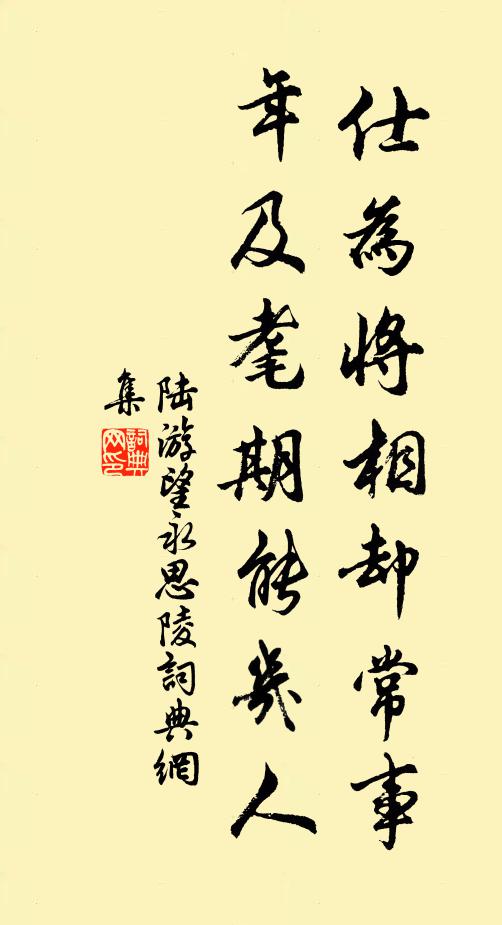 仕為將相却常事
年及耄期能幾人
陸游望永思陵詞典網
集
詞典
网印